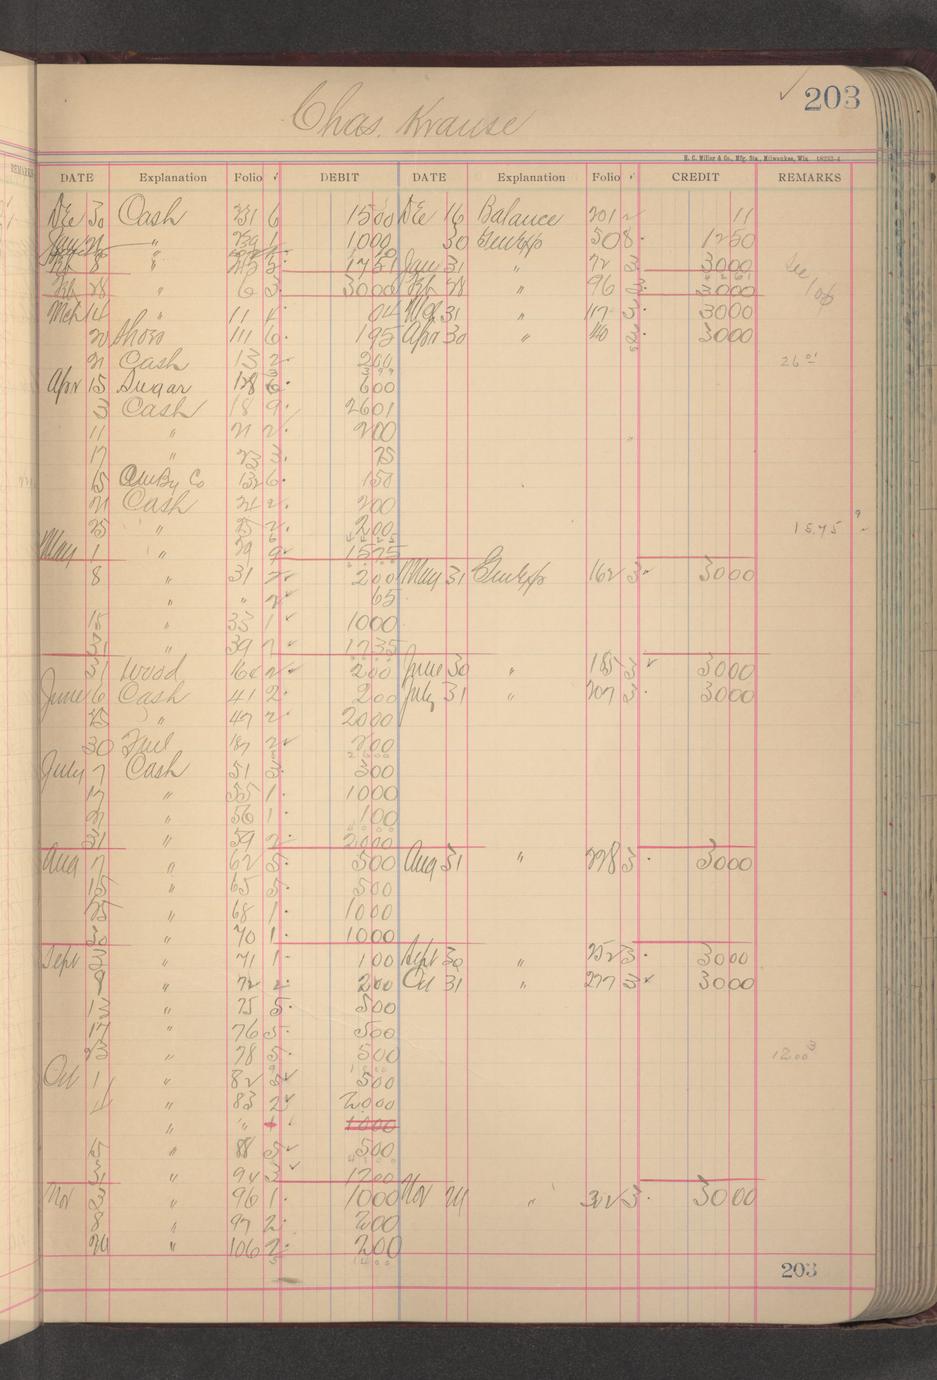 203
Chas. Krause
H. C. Miller & Co., Mfg. Sta., Milwaukee, Wis. 18232-4
DATE Explanation Folio DEBIT DATE Explanation Folio CREDIT REMARKS
Dec 30 Cash 231 6 1500 Dec 16 Balance 201 11
Jan 21 " 239 1 1000 30 508 1250
Feb 8 " 5 1751 Jan 31 " 72 3 3000 See
Feb 28 " 6 3 3000 Feb 28 " 96 3 3000 106
Mch 14 " 11 04 Mch 31 " 117 3 3000
20 Shoes 111 6 195 Apr 30 " 40 3000
21 Cash 13 2 200 26 01
Apr 15 Sugar 128 6 600
3 Cash 18 9 2601
11 " 21 2 200
17 " 23 3 75
15 Co 132 6 150
21 Cash 24 2 200
25 " 25 2 200 15.75
May 1 " 29 9 1575
8 " 31 2 200 May 31 162 3 3000
" " 2 65
18 " 33 1 1000
31 " 39 2 1735
31 Wood 162 2 200 June 30 " 185 3 3000
June 6 Cash 41 2 200 July 31 " 207 3 3000
25 " 47 2 2000
30 Fuel 187 2 200
July 7 Cash 51 3 300
17 " 55 1 1000
21 " 56 1 100
31 " 59 2 2000
Aug 7 " 62 5 500 Aug 31 " 228 3 3000
15 " 65 5 500
25 " 68 1 1000
30 " 70 1 1000
Sept 3 " 71 1 100 Sept 30 " 252 3 3000
9 " 72 2 200 Oct 31 " 277 3 3000
13 " 75 5 500
17 " 76 5 500
23 " 78 5 500 12.00
Oct 1 " 82 5 500
4 " 83 2 2000
" " 1 1000
15 " 88 5 500
31 " 94 3 1200
Nov 3 " 96 1 1000 Nov 24 " 302 3 3000
8 " 97 2 200
24 " 106 2 200
203